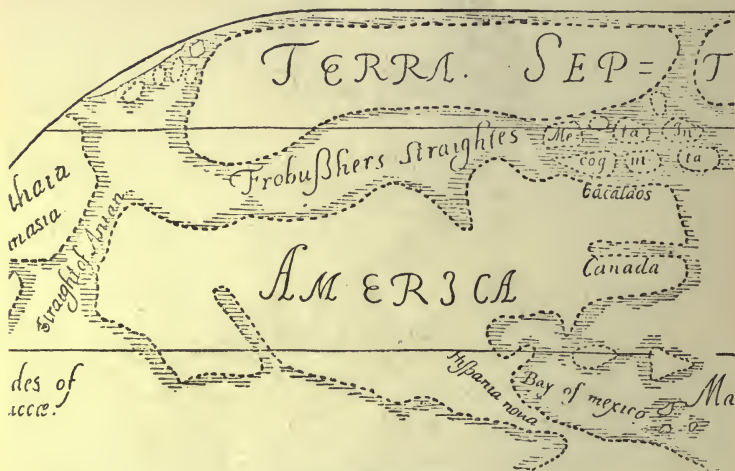 TERRA. SEP= T
Frobußhers straightes
Me ta In
cog ni ta
Bacalaos
thaia
masia
straight of Anian
AMERICA
Canada
Hißpania noua
Bay of mexico
des of
uccæ.
Ma